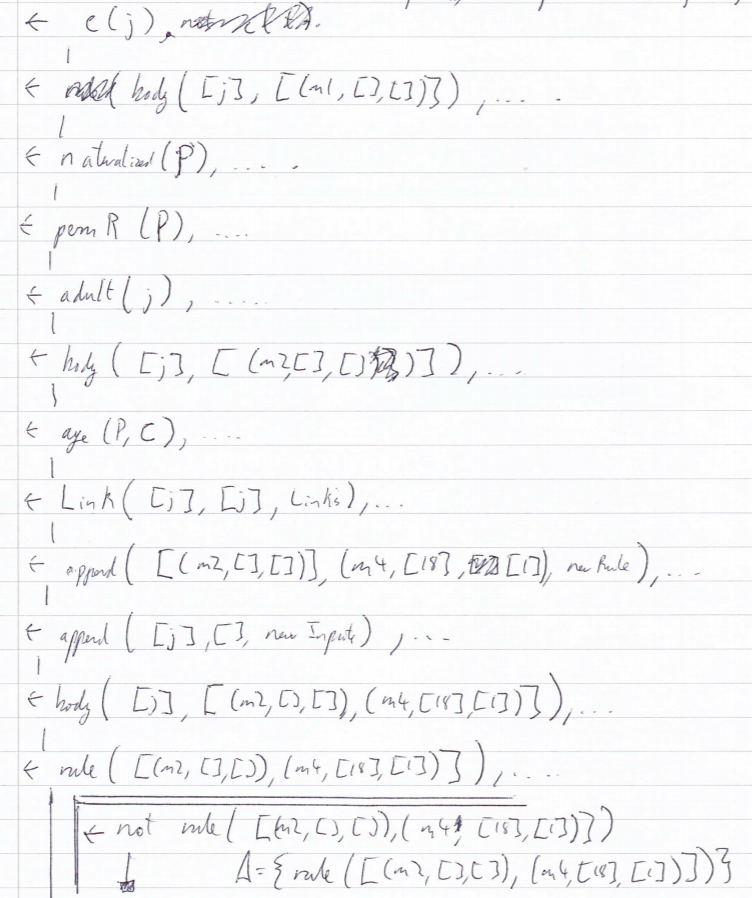 ← e(j),
← body([j], [(m1, [], [])]), .....
← naturalized(P), .....
← permR(P), ....
← adult(j), .....
← body([j], [(m2, [], [])]), ...
← age(P, C), ....
← Link([j], [j], Links), ...
← append([(m2, [], [])], (m4, [18], [1]), newRule), ...
← append([j], [], new Inputs), ...
← body([j], [(m2, [], []), (m4, [18], [1])]), ...
← rule([(m2, [], []), (m4, [18], [1])]), ....
← not rule([(m2, [], []), (m4, [18], [1])])
Δ = {rule([(m2, [], []), (m4, [18], [1])])}